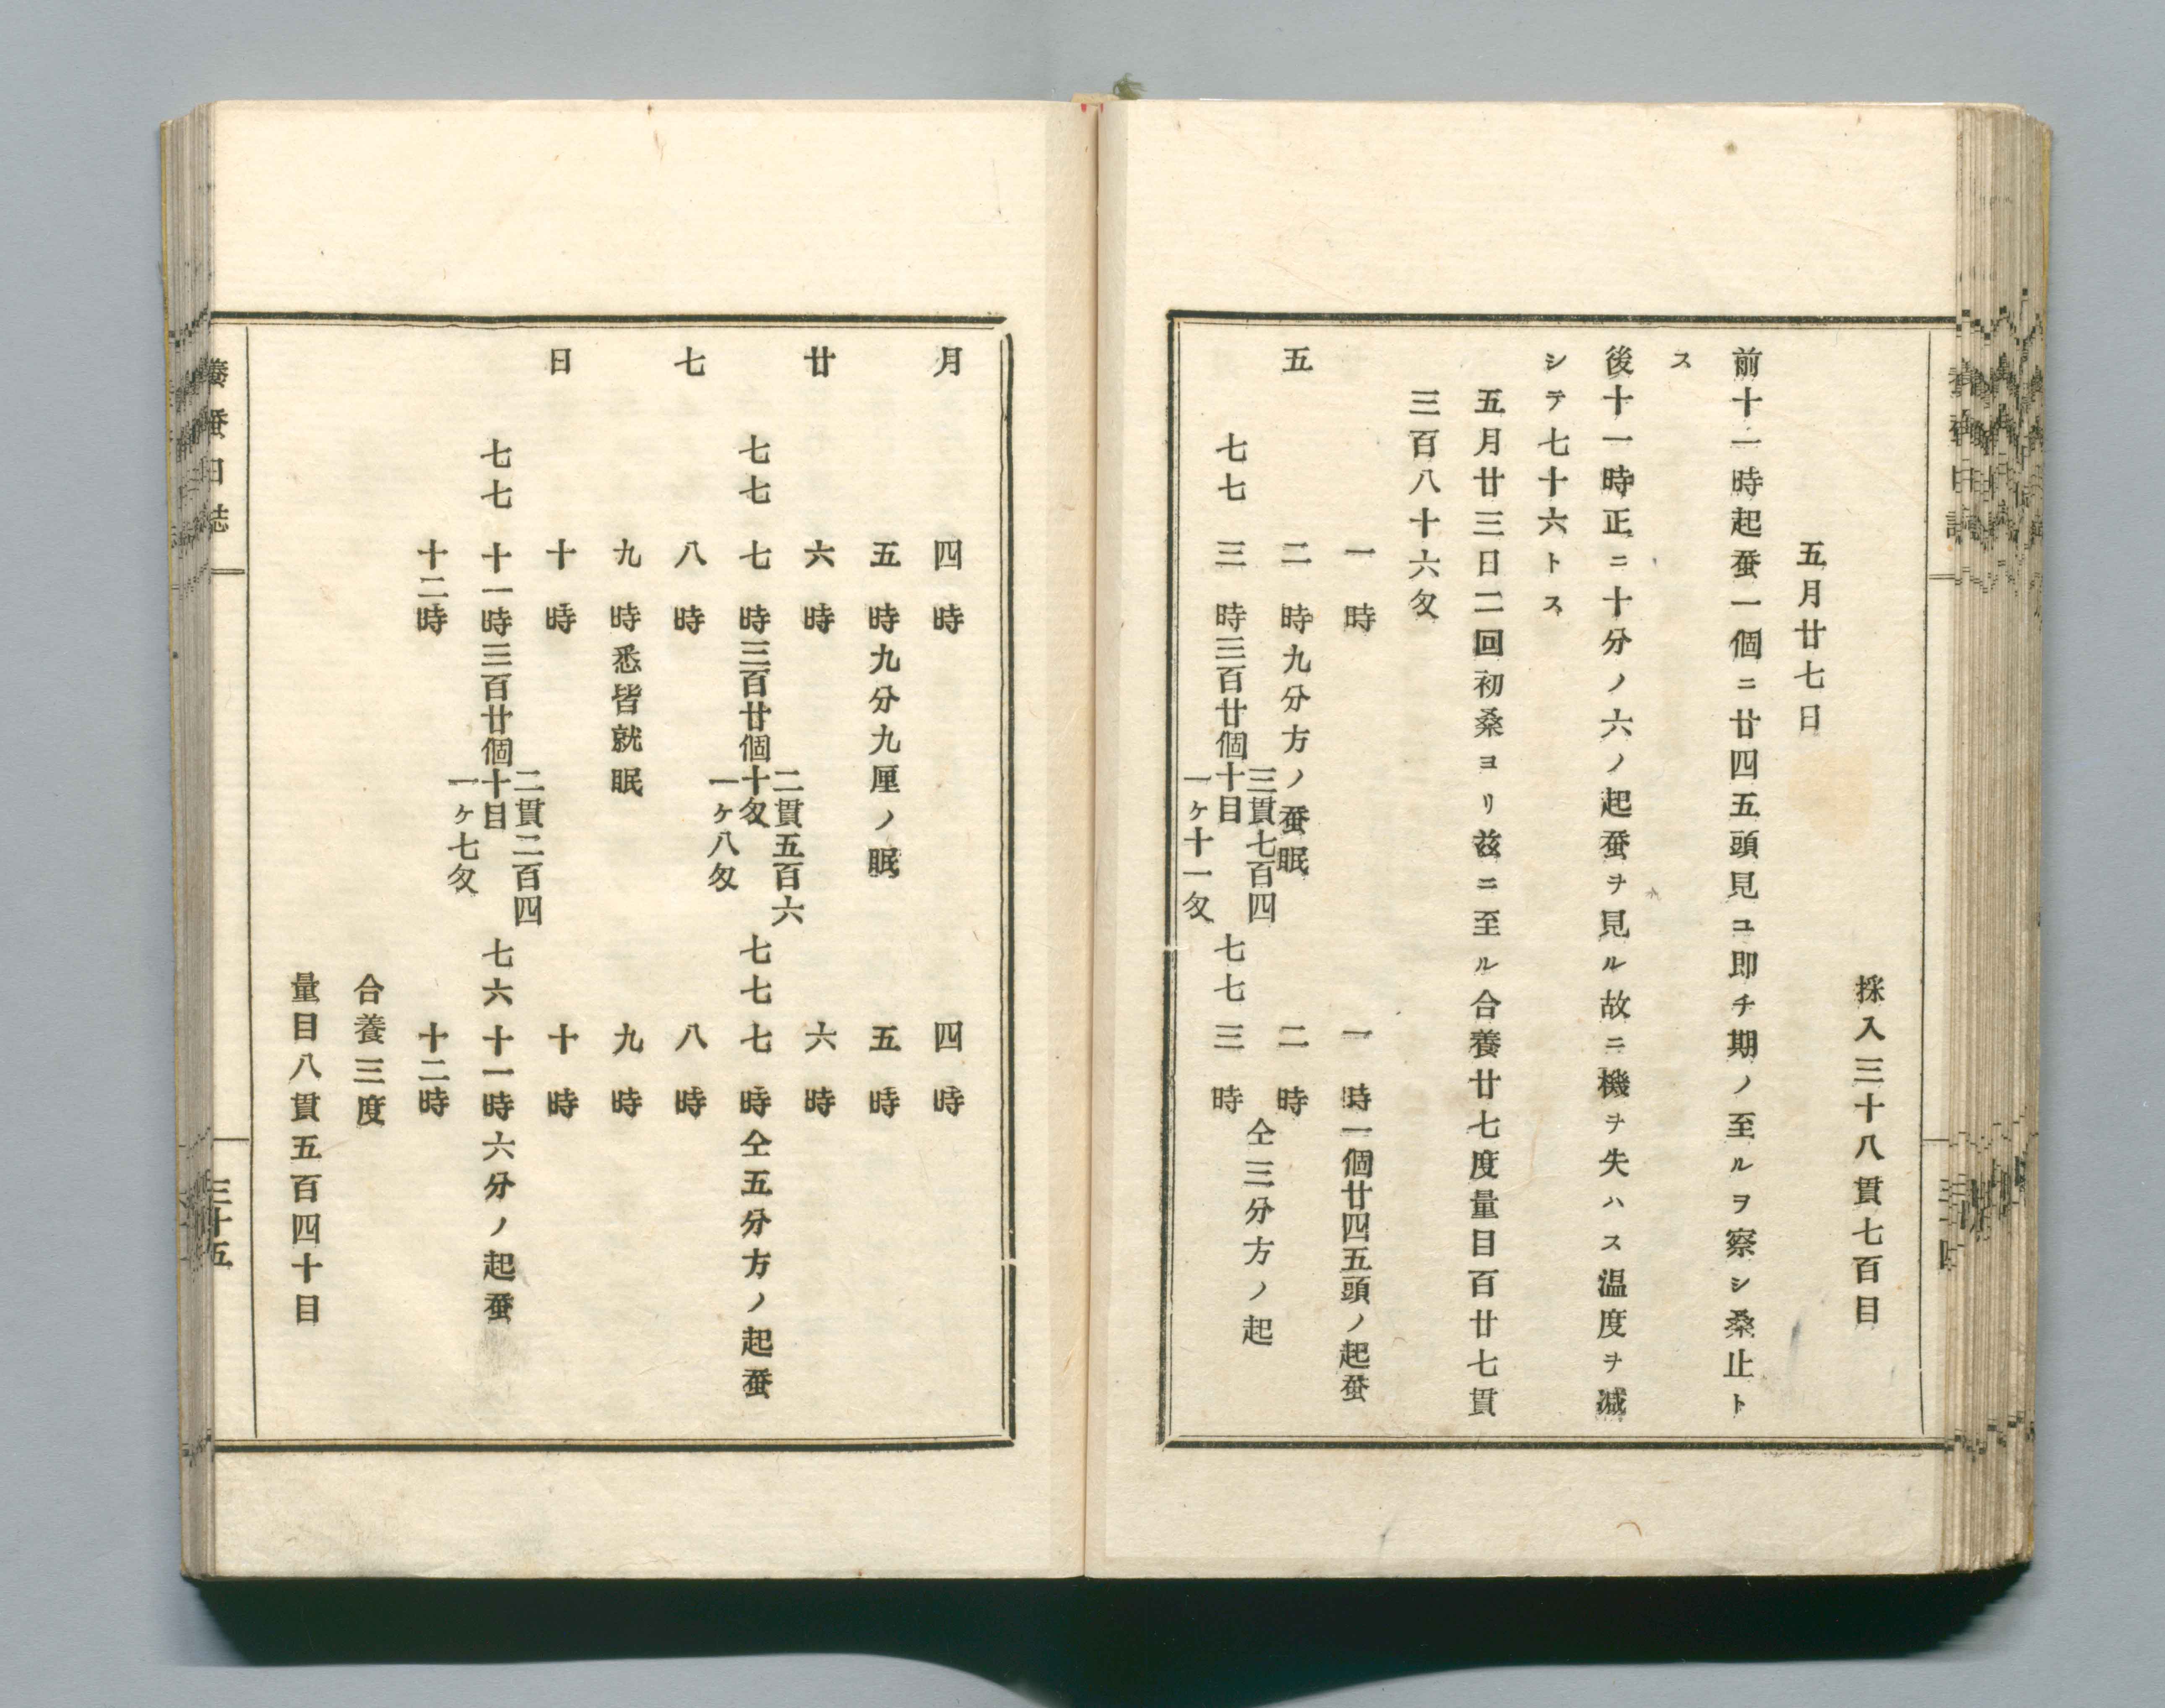 採入三十八貫七百目
五月廿七日
前十一時起蚕一個ニ廿四五頭見ユ即チ期ノ至ルヲ察シ桑止ト
ス
後十一時正ニ十分ノ六ノ起蚕ヲ見ル故ニ機ヲ失ハス温度ヲ減
シテ七十六トス
五月廿三日二回初桑ヨリ茲ニ至ル合養廿七度量目百廿七貫
三百八十六匁
一時 一時一個廿四五頭ノ起蚕
五 二時九分方ノ蚕眠 二時
七七 三時三百廿個三貫七百四十目一ヶ十一匁 七七 三時仝三分方ノ起
月 四時 四時
五時九分九厘ノ眠 五時
廿 六時 六時
七七 七時三百廿個二貫五百六十匁一ヶ八匁 七七 七時仝五分方ノ起蚕
七 八時 八時
九時悉皆就眠 九時
日 十時 十時
七七 十一時三百廿個二貫二百四十目一ヶ七匁 七六 十一時六分ノ起蚕
十二時 十二時
合養三度
量目八貫五百四十目
養蚕日誌 三十五